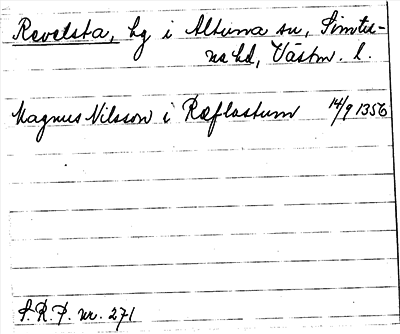 Revelsta, hg i Altuna sn, Simtu-
na hd, Västm. l.
Magnus Nilsson i Ræflastum 14/9 1356
S.R.P. nr. 271